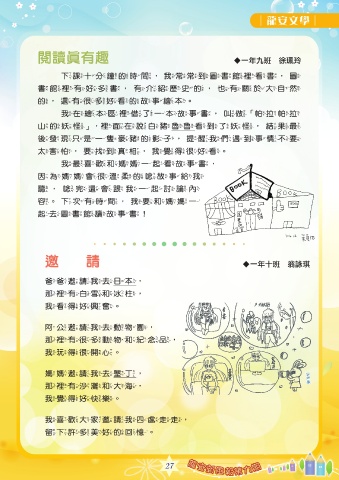 龍安文學
閱讀真有趣
◆一年九班 徐珮玲
下課十分鐘的時間，我常常到圖書館裡看書，圖
書館裡有好多書，有介紹歷史的，也有關於大自然
的，還有很多好看的故事繪本。
我在繪本區裡借了一本故事書，叫做「帕拉帕拉
山的妖怪」，裡面在說白豬魯魯看到了妖怪，結果最
後發現只是一隻豪豬的影子，提醒我們遇到事情不要
太害怕，要找到真相，我覺得很好看。
我最喜歡和媽媽一起看故事書，
因為媽媽會很溫柔的唸故事給我
聽，唸完還會跟我一起討論內
容。下次有時間，我要和媽媽一
起去圖書館讀故事書！
BOOK
邀 請
◆一年十班 翁詠琪
爸爸邀請我去日本，
那裡有白雪和冰柱，
我看得好興奮。
阿公邀請我去動物園，
那裡有很多動物和紀念品，
我玩得很開心。
媽媽邀請我去墾丁，
那裡有沙灘和大海，
我覺得好快樂。
我喜歡大家邀請我四處走走，
留下許多美好的回憶。
27